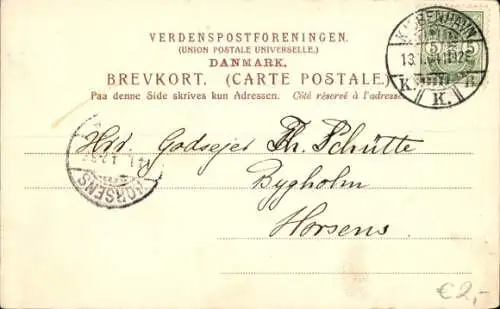 VERDENSPOSTFORENINGEN.
(UNION POSTALE UNIVERSELLE.)
DANMARK.
BREVKORT. (CARTE POSTALE.)
Paa denne Side skrives kun Adressen. Côté réservé à l'adresse
KJØBENHAVN
5 5
K. K. B
Hr. Godsejer Th. Schütte
Bygholm
Horsens
HORSENS
€2,-